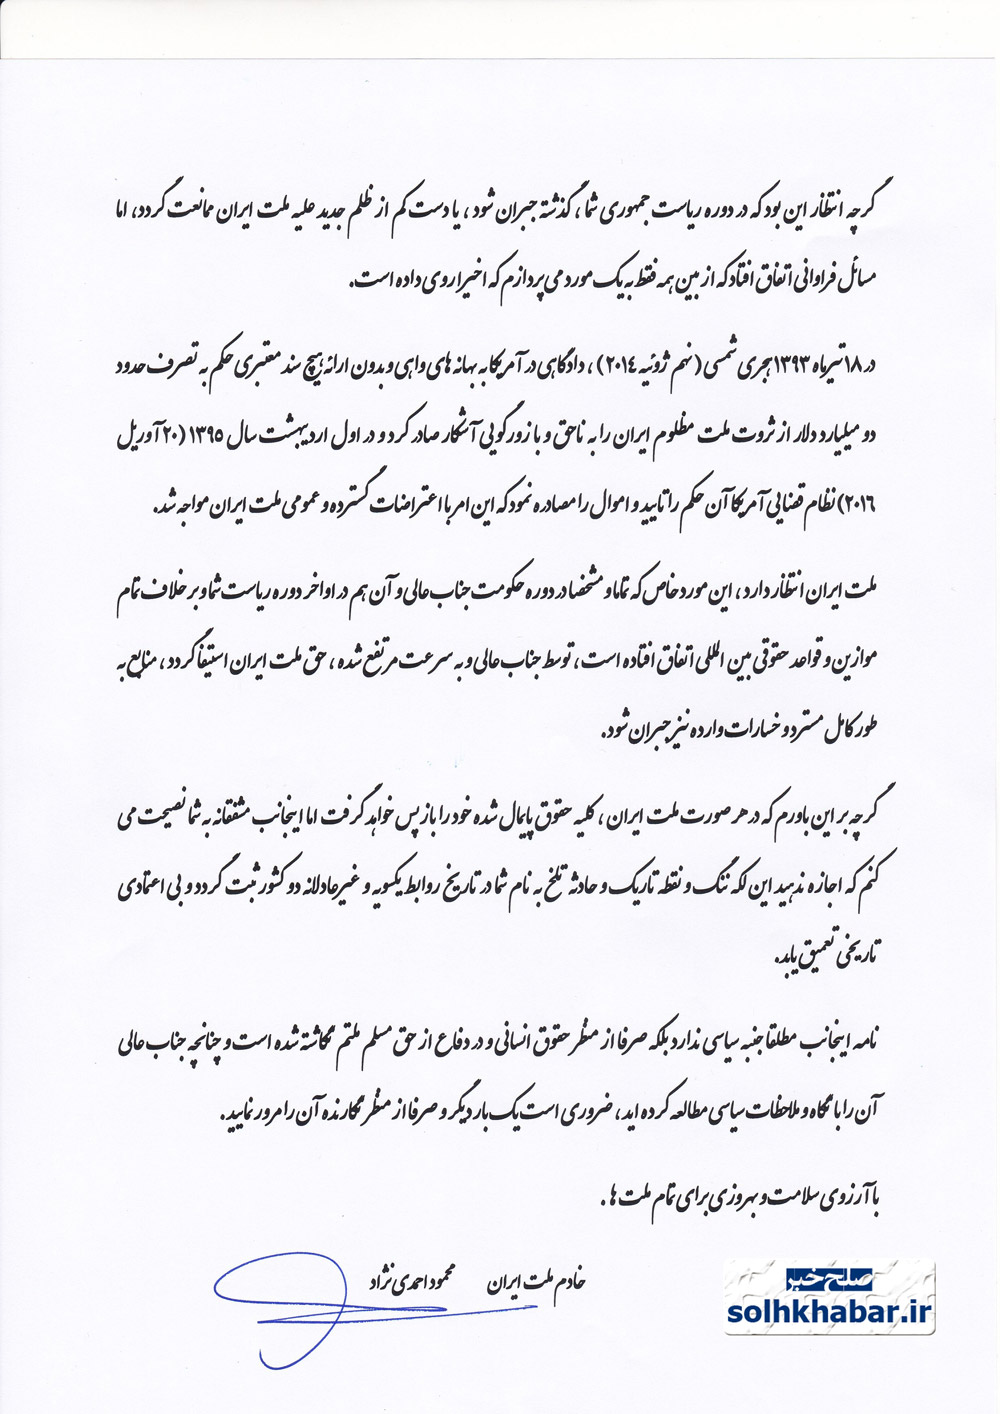 گرچه انتظار این بود که در دوره ریاست جمهوری شما، گذشته جبران شود، یا دست کم از ظلم جدید علیه ملت ایران ممانعت گردد، اما
مسائل فراوانی اتفاق افتاد که از بین همه فقط به یک مورد می پردازم که اخیرا روی داده است.
در ۱۸ تیرماه ۱۳۹۳ هجری شمسی (نهم ژوئیه ۲۰۱٤)، دادگاهی در آمریکا به بهانه های واهی و بدون ارائه هیچ سند معتبری حکم به تصرف حدود
دو میلیارد دلار از ثروت ملت مظلوم ایران را به ناحق و با زورگویی آشکار صادر کرد و در اول اردیبهشت سال ۱۳۹۵ (۲۰ آوریل
۲۰۱٦) نظام قضایی آمریکا آن حکم را تایید و اموال را مصادره نمود که این امر با اعتراضات گسترده و عمومی ملت ایران مواجه شد.
ملت ایران انتظار دارد، این مورد خاص که تماما و مشخصا در دوره حکومت جناب عالی و آن هم در اواخر دوره ریاست شما و بر خلاف تمام
موازین و قواعد حقوقی بین المللی اتفاق افتاده است، توسط جناب عالی و به سرعت مرتفع شده، حق ملت ایران استیفا گردد، منابع به
طور کامل مسترد و خسارات وارده نیز جبران شود.
گرچه بر این باورم که در هر صورت ملت ایران، کلیه حقوق پایمال شده خود را باز پس خواهد گرفت اما اینجانب مشفقانه به شما نصیحت می
کنم که اجازه ندهید این لکه ننگ و نقطه تاریک و حادثه تلخ به نام شما در تاریخ روابط یکسویه و غیرعادلانه دو کشور ثبت گردد و بی اعتمادی
تاریخی تعمیق یابد.
نامه اینجانب مطلقا جنبه سیاسی ندارد بلکه صرفا از منظر حقوق انسانی و در دفاع از حق مسلم ملتم نگاشته شده است و چنانچه جناب عالی
آن را با نگاه و ملاحظات سیاسی مطالعه کرده اید، ضروری است یک بار دیگر و صرفا از منظر نگارنده آن را مرور نمایید.
با آرزوی سلامت و بهروزی برای تمام ملت ها.
خادم ملت ایران محمود احمدی نژاد
صلح خبر
solhkhabar.ir